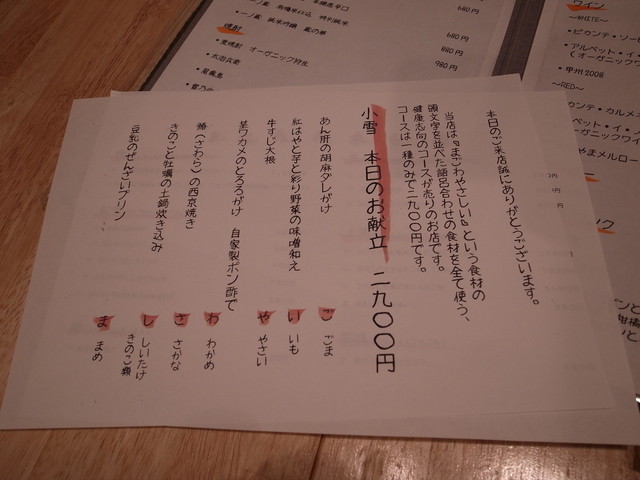 本日のご来店誠にありがとうございます。
当店は『まごわやさしい』という食材の
頭文字を並べた語呂合わせの食材を全て使う、
健康志向のコースが売りのお店です。
コースは一種のみで二九〇〇円です。
小雪 本日のお献立 二九〇〇円
あん肝の胡麻ダレがけ
ご ごま
紅はやと芋と彩り野菜の味噌和え
い いも
牛すじ大根
や やさい
茎ワカメのとろろがけ 自家製ポン酢で
わ わかめ
鰆(さわら)の西京焼き
さ さかな
きのこと牡蠣の土鍋炊き込み
し しいたけ
きのこ類
豆乳のぜんざいプリン
ま まめ
680円
焼酎
680円
・麦焼酎 オーガニック
880円
980円
ワイン
~WHITE~
・ピカンテ・ソービ
・アルベット・イ・
(オーガニックワ
・甲州2008
~RED~
カンテ・カルメネ
ベット・イ・
ーガニックワイ
やまメルロー